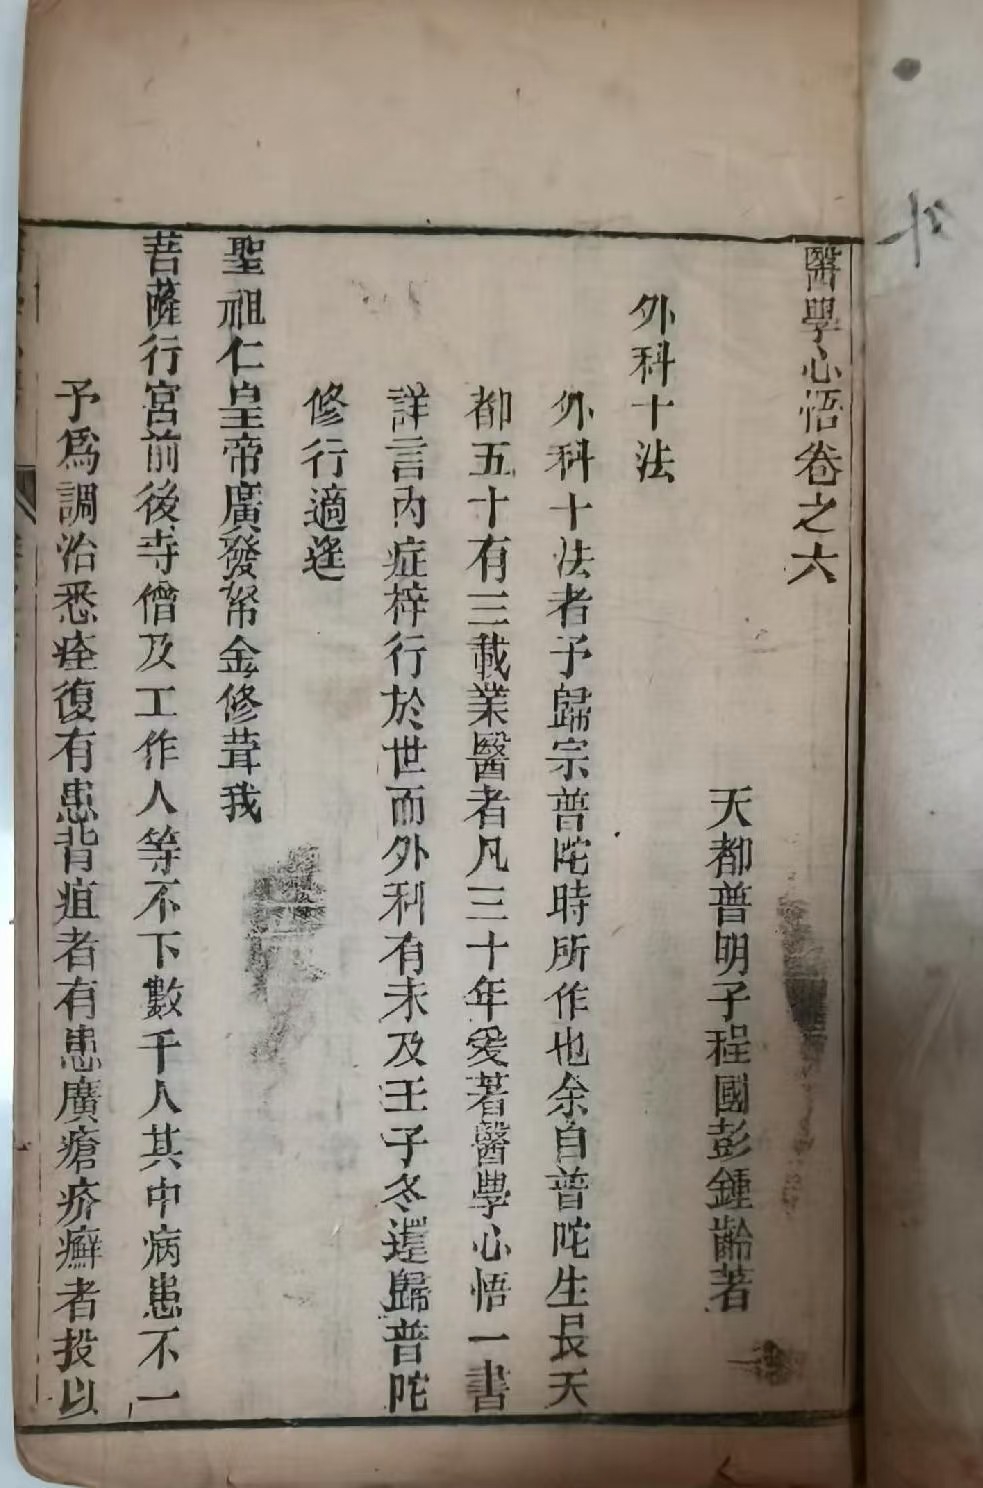 醫學心悟卷之六
天都普明子程國彭鍾齡著
外科十法
外科十法者予歸宗普陀時所作也余自普陀生長天
都五十有三載業醫者凡三十年爰著醫學心悟一書
詳言內症梓行於世而外科有未及壬子冬還歸普陀
修行適逢
聖祖仁皇帝廣發帑金修葺我
菩薩行宮前後寺僧及工作人等不下數千人其中病患不一
予為調治悉痊復有患背疽者有患廣瘡疥癬者投以